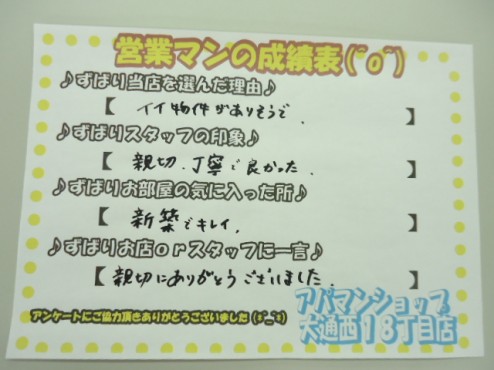 営業マンの成績表(^o^)
♪ずばり当店を選んだ理由♪
【 イイ物件がありそうで。 】
♪ずばりスタッフの印象♪
【 親切、丁寧で良かった。 】
♪ずばりお部屋の気に入った所♪
【 新築でキレイ。 】
♪ずばりお店orスタッフに一言♪
【 親切にありがとうございました。 】
アンケートにご協力頂きありがとうございました(*^_^*)
アパマンショップ
大通西18丁目店